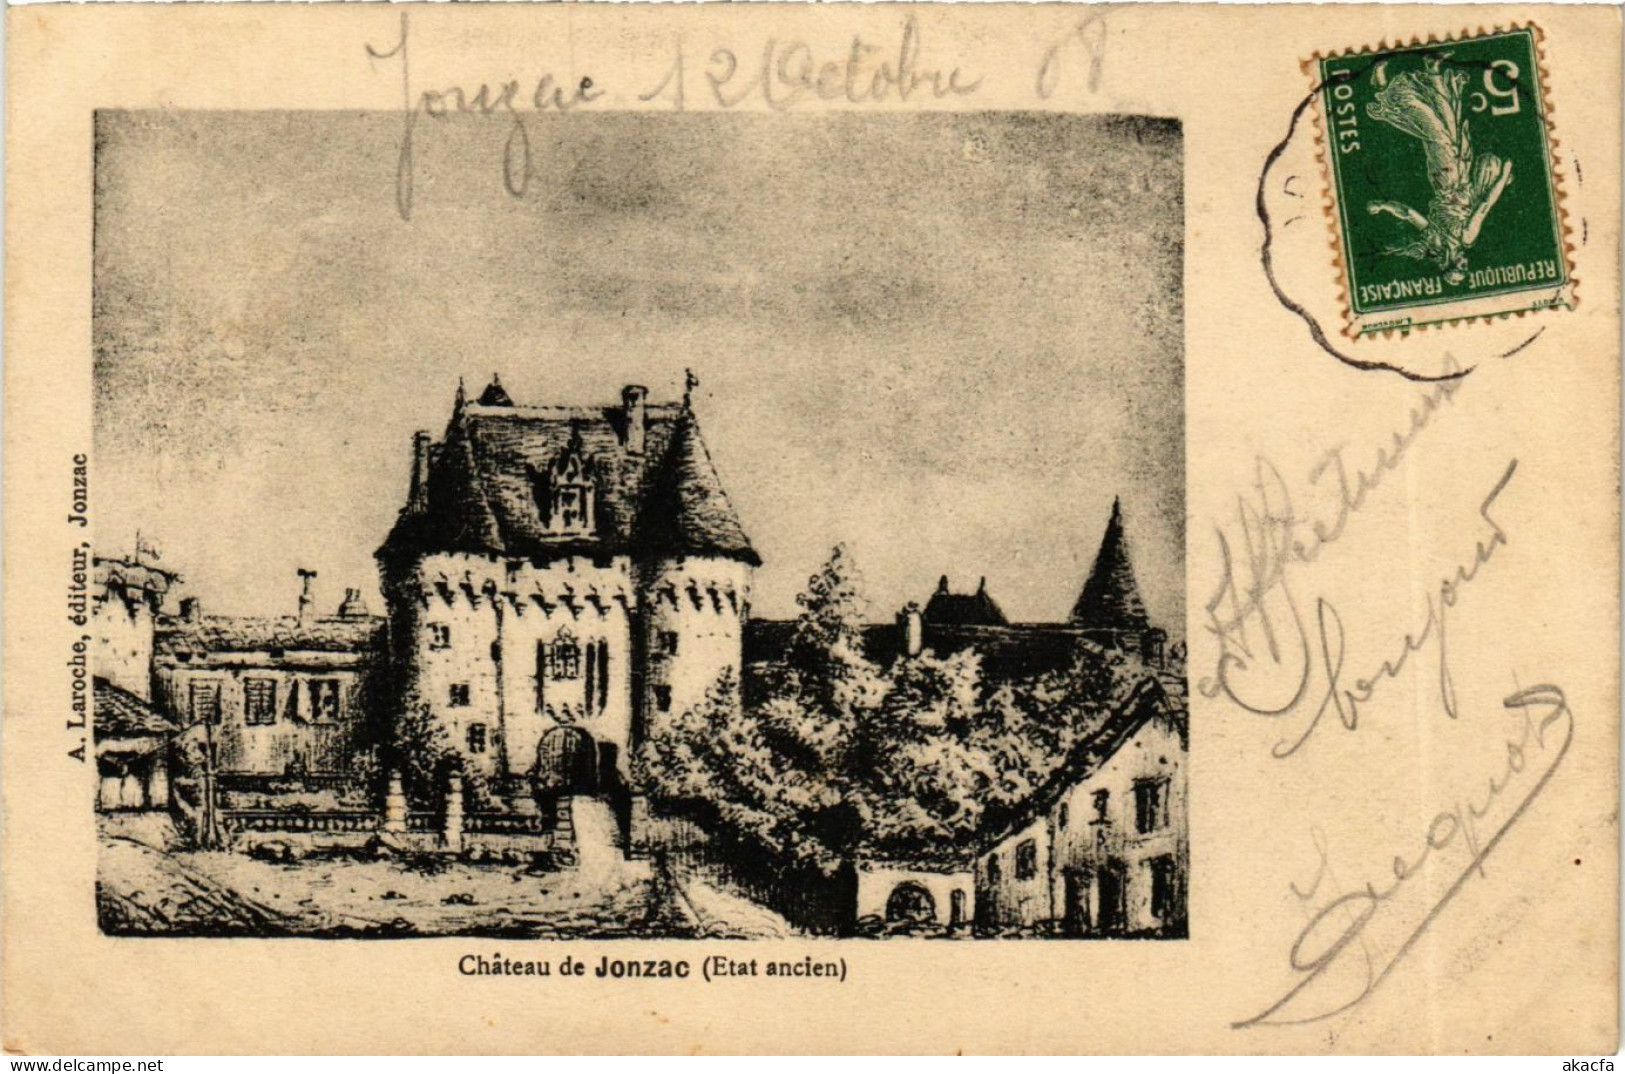 Jonzac 12 Octobre 08
5c
POSTES
REPUBLIQUE FRANÇAISE
A. Laroche, éditeur, Jonzac
Affectueux
bonjour
Château de Jonzac (Etat ancien)
delcampe.net
akacfa